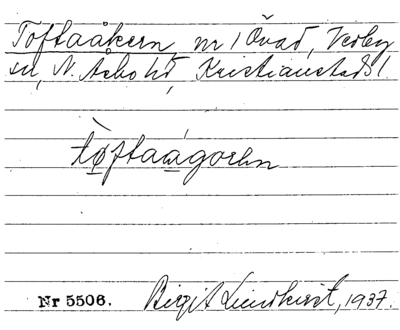 Toftaåkern, nr 1 Övad, Verby
sn, N. Asbo hd, Kristianstads l
tøftaågorhn
Nr 5506. Birgit Lindkvist, 1937.